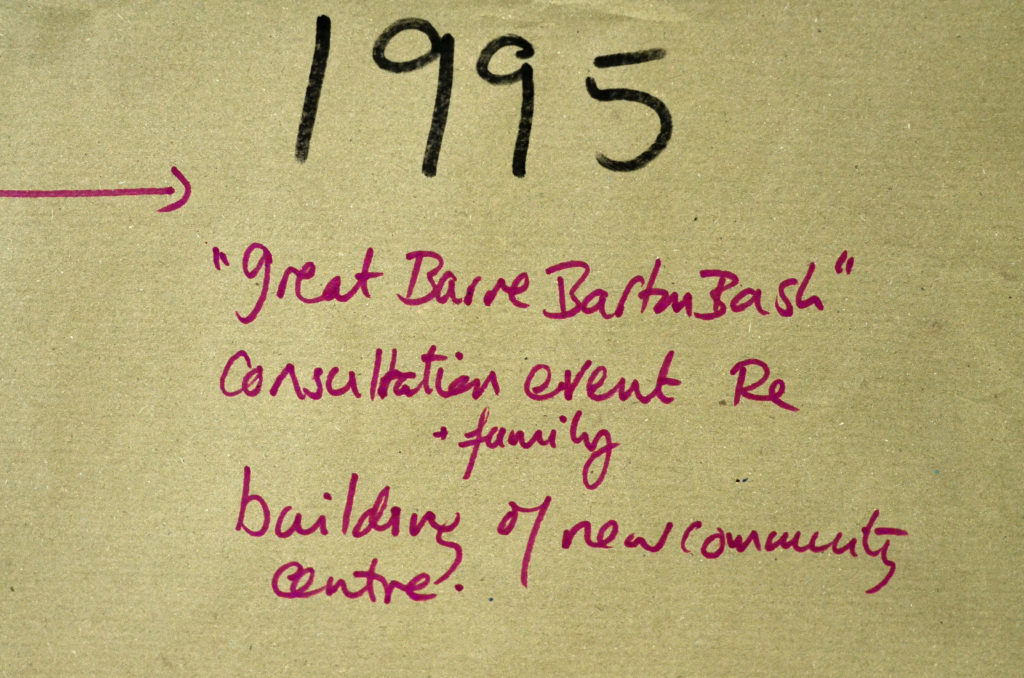 1995
"great Barre Barton Bash"
Consultation event Re
+ family
building of new community
centre.